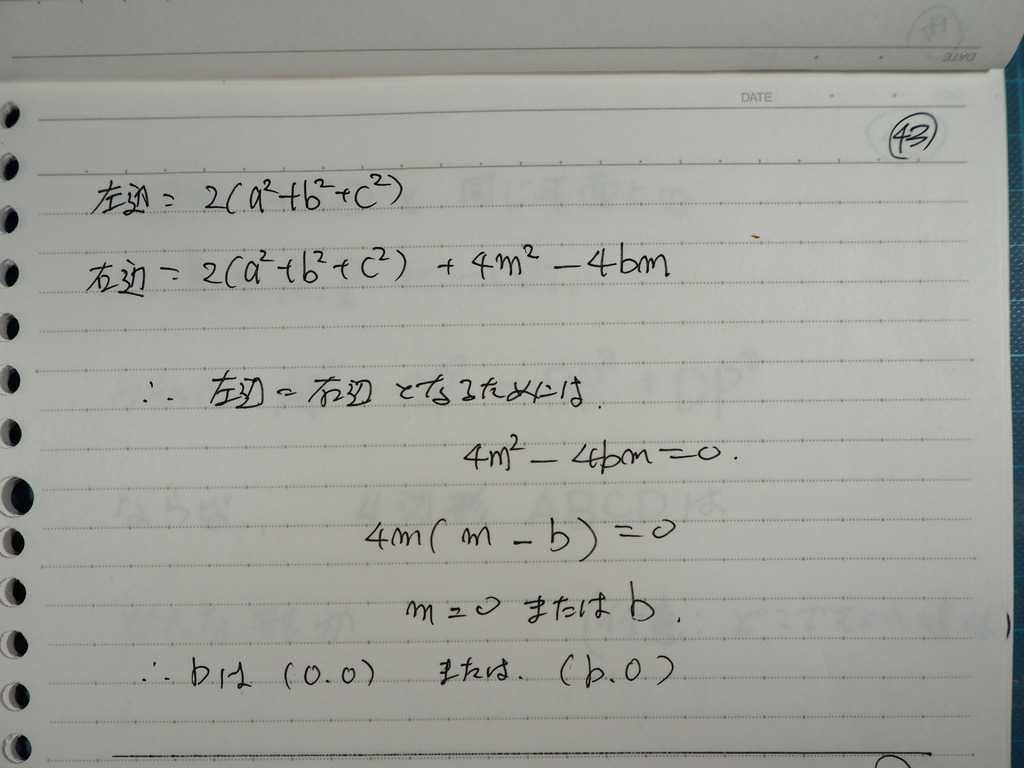 DATE
DATE
㊸
左辺 = 2(a²+b²+c²)
右辺 = 2(a²+b²+c²) + 4m² - 4bm
∴ 左辺 = 右辺 となるためには.
4m² - 4bm = 0.
4m(m - b) = 0
m = 0 または b.
∴ bは (0.0) または. (b.0)